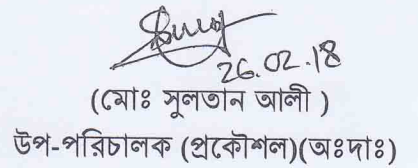 26.02.18
(মোঃ সুলতান আলী )
উপ-পরিচালক (প্রকৌশল)(অঃদাঃ)